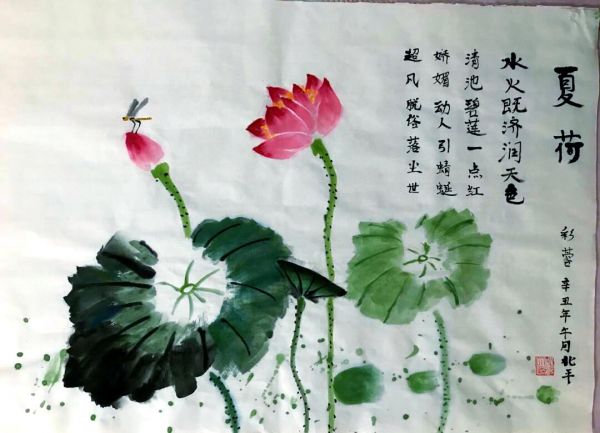 夏荷
水火既济润天色
清池碧莲一点红
娇媚动人引蜻蜓
超凡脱俗落尘世
彩蓉 辛丑年午月北平